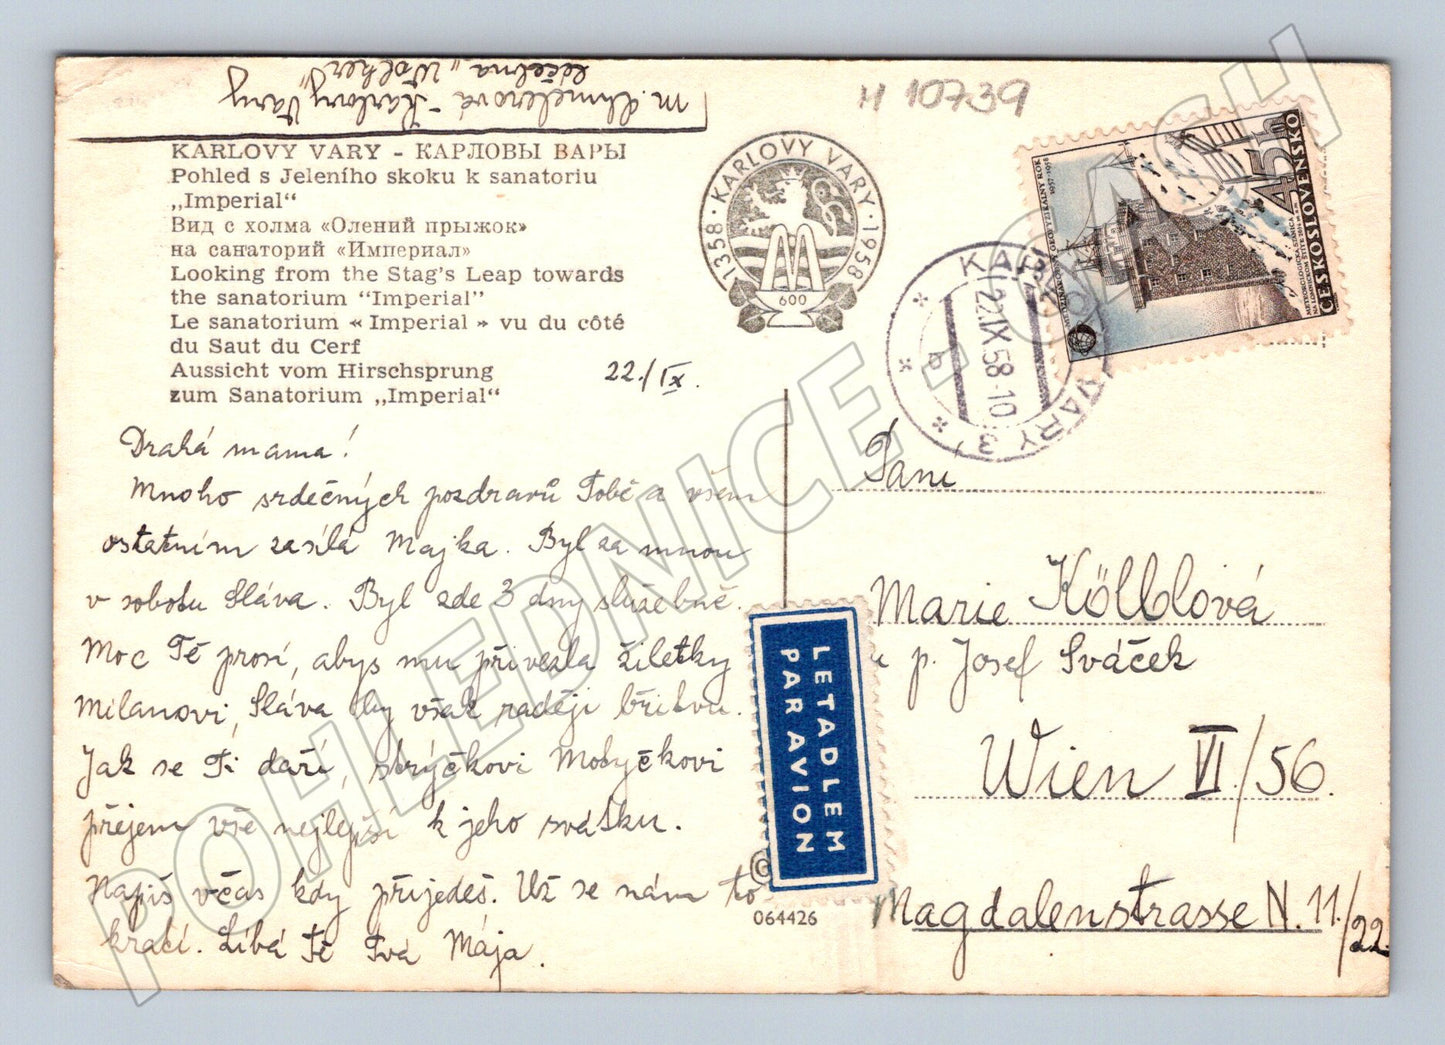 M. Chmelerová - Karlovy Vary
léčebna „Wolker"
H 10739
KARLOVY VARY - КАРЛОВЫ ВАРЫ
Pohled s Jeleního skoku k sanatoriu
„Imperial“
Вид с холма «Олений прыжок»
на санаторий «Империал»
Looking from the Stag's Leap towards
the sanatorium "Imperial"
Le sanatorium « Imperial » vu du côté
du Saut du Cerf
Aussicht vom Hirschsprung
zum Sanatorium „Imperial“
22./IX.
Drahá mama!
Mnoho srdečných pozdravů Tobě a všem
ostatním zasílá Majka. Byl za mnou
v sobotu Sláva. Byl zde 3 dny služebně.
Moc Tě prosí, abys mu přivezla žiletky
Milanovi, Sláva by však raději břitvu.
Jak se Ti daří, strýčkovi Motyčkovi
přejem vše nejlepší k jeho svátku.
Napiš včas kdy přijedeš. Už se nám to
krátí. Líbá Tě Tvá Mája.
1358 · KARLOVY VARY · 1958
600
KARLOVY VARY 3
22.IX.58-10
b
45h
ČESKOSLOVENSKO
LETADLEM
PAR AVION
©
064426
Paní
Marie Kölblová
u p. Josef Sváček
Wien VI/56.
Magdalenstrasse N. 11./22
POHLEDNICE - SASH